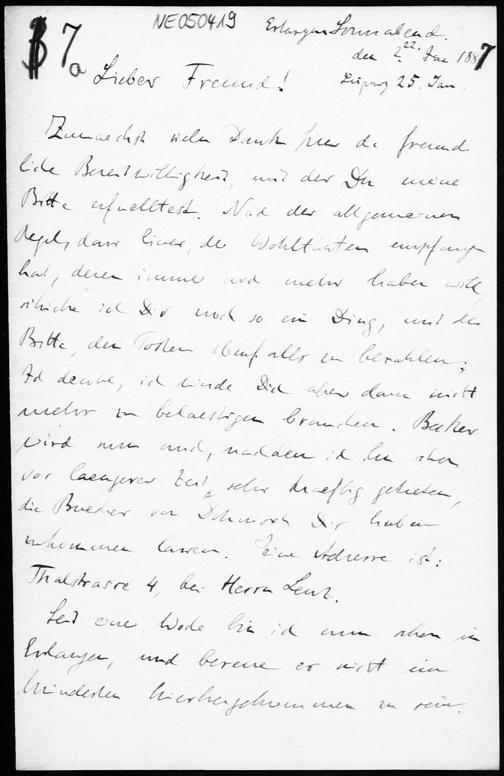 NE050419
7a
Erlangen Sonnabend.
den 22. Jan 1887
Leipzig 25. Jan.
Lieber Freund!
Zunaechst vielen Dank fuer die freund
liche Bereitwilligkeit, mit der Du meine
Bitte erfuelltest. Nach der allgemeinen
Regel, dass einer, der Wohlthaten empfangen
hat, deren immer noch mehr haben will,
schicke ich Dir noch so ein Ding, mit der
Bitte, den Posten ebenfalls zu bezahlen;
Ich denke, ich werde Dich aber dann nicht
mehr zu belaestigen brauchen. Becker
wird nun auch, nachdem ich ihn schon
vor laengerer Zeit sehr kraeftig getreten,
die Buecher von Dohmort Dir haben
zukommen lassen. Seine Adresse ist:
Thalstrasse 4, bei Herrn Lenz.
Seit einer Woche bin ich nun schon in
Erlangen, und bereue es nicht im
Mindesten hierhergekommen zu sein.